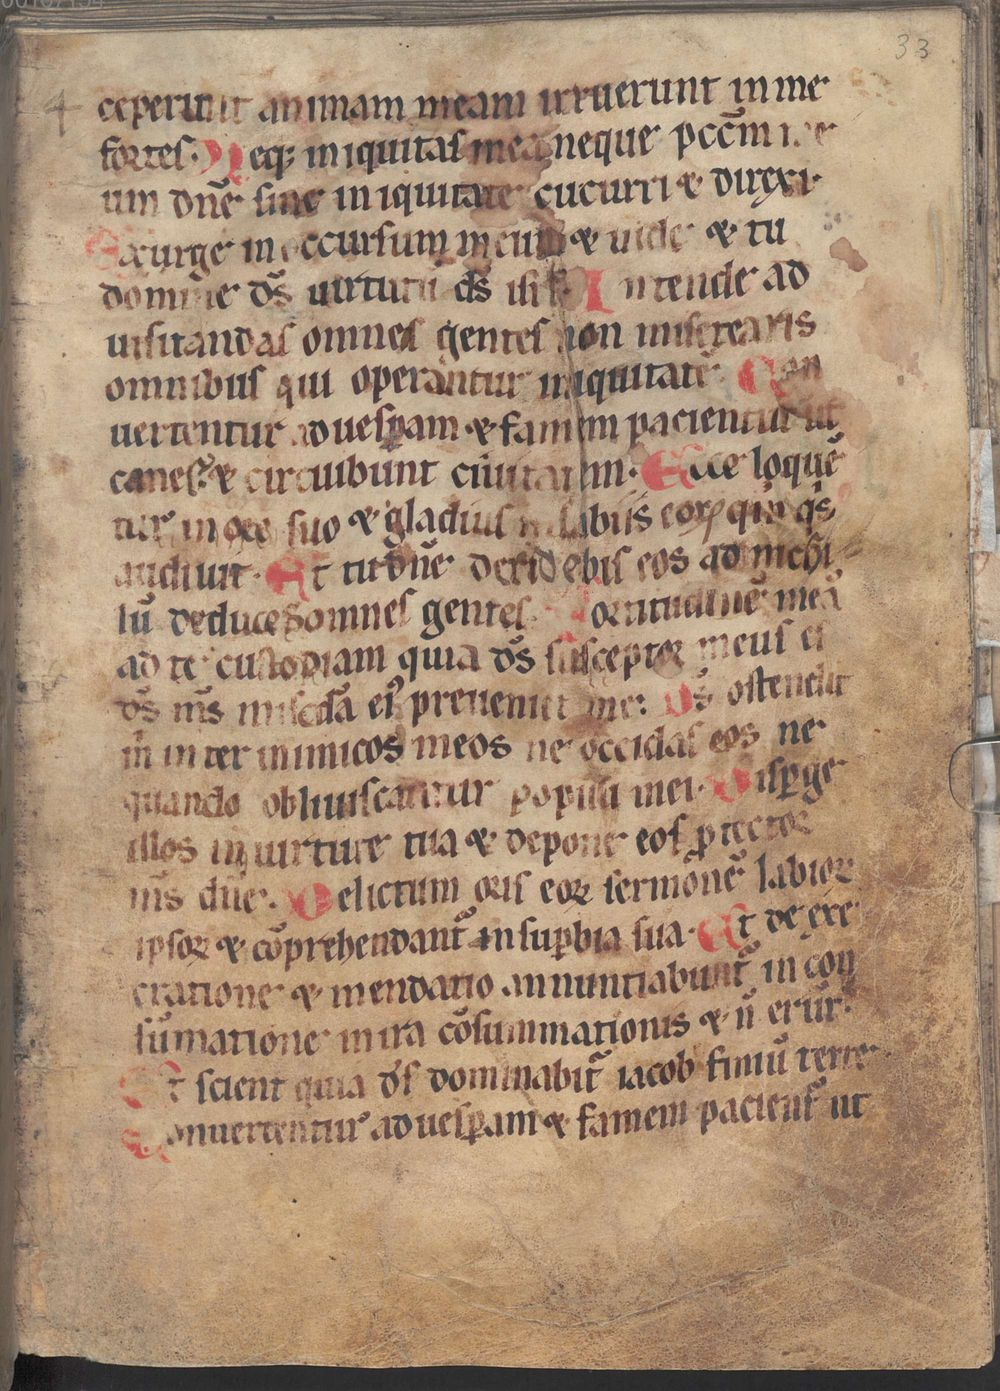 33
ceperunt animam meam irruerunt in me
fortes. Neq; iniquitas mea neque pccm̄ me
um dn̄e sine iniquitate cucurri & direxi
Exurge in occursum meum & uide & tu
domine ds̄ uirtutū ds̄ isrl̄ Intende ad
uisitandas omnes gentes non miserearis
omnibus qui operantur iniquitatē Con
uertentur ad uesꝑam & famem pacientur ut
canes & circuibunt ciuitatem. Ecce loquē
tur in ore suo & gladius in labiis eoꝝ qm̄ qs̄
audiuit. Et tu dn̄e deridebis eos ad nichi
lū deduces omnes gentes. Fortitudinē meā
ad te custodiam quia ds̄ susceptor meus es
ds̄ ms̄ misc̄dia ei9 preueniet me: Ds̄ ostendit
m̄ inter inimicos meos ne occidas eos ne
quando obliuiscantur populi mei. Disꝑge
illos in uirtute tua & depone eos ꝓtector
ms̄ dn̄e. Delictum oris eoꝝ sermonē labioꝝ
ipsoꝝ & cōprehendant᷑ in suꝑbia sua. Et de exe
cratione & mendatio annuntiabunt᷑ in con
sūmatione in ira cōsummationis & n̄ erūt.
Et scient quia ds̄ dominabit᷑ iacob finiū terre
Conuertentur ad uesꝑam & famem pacient᷑ ut